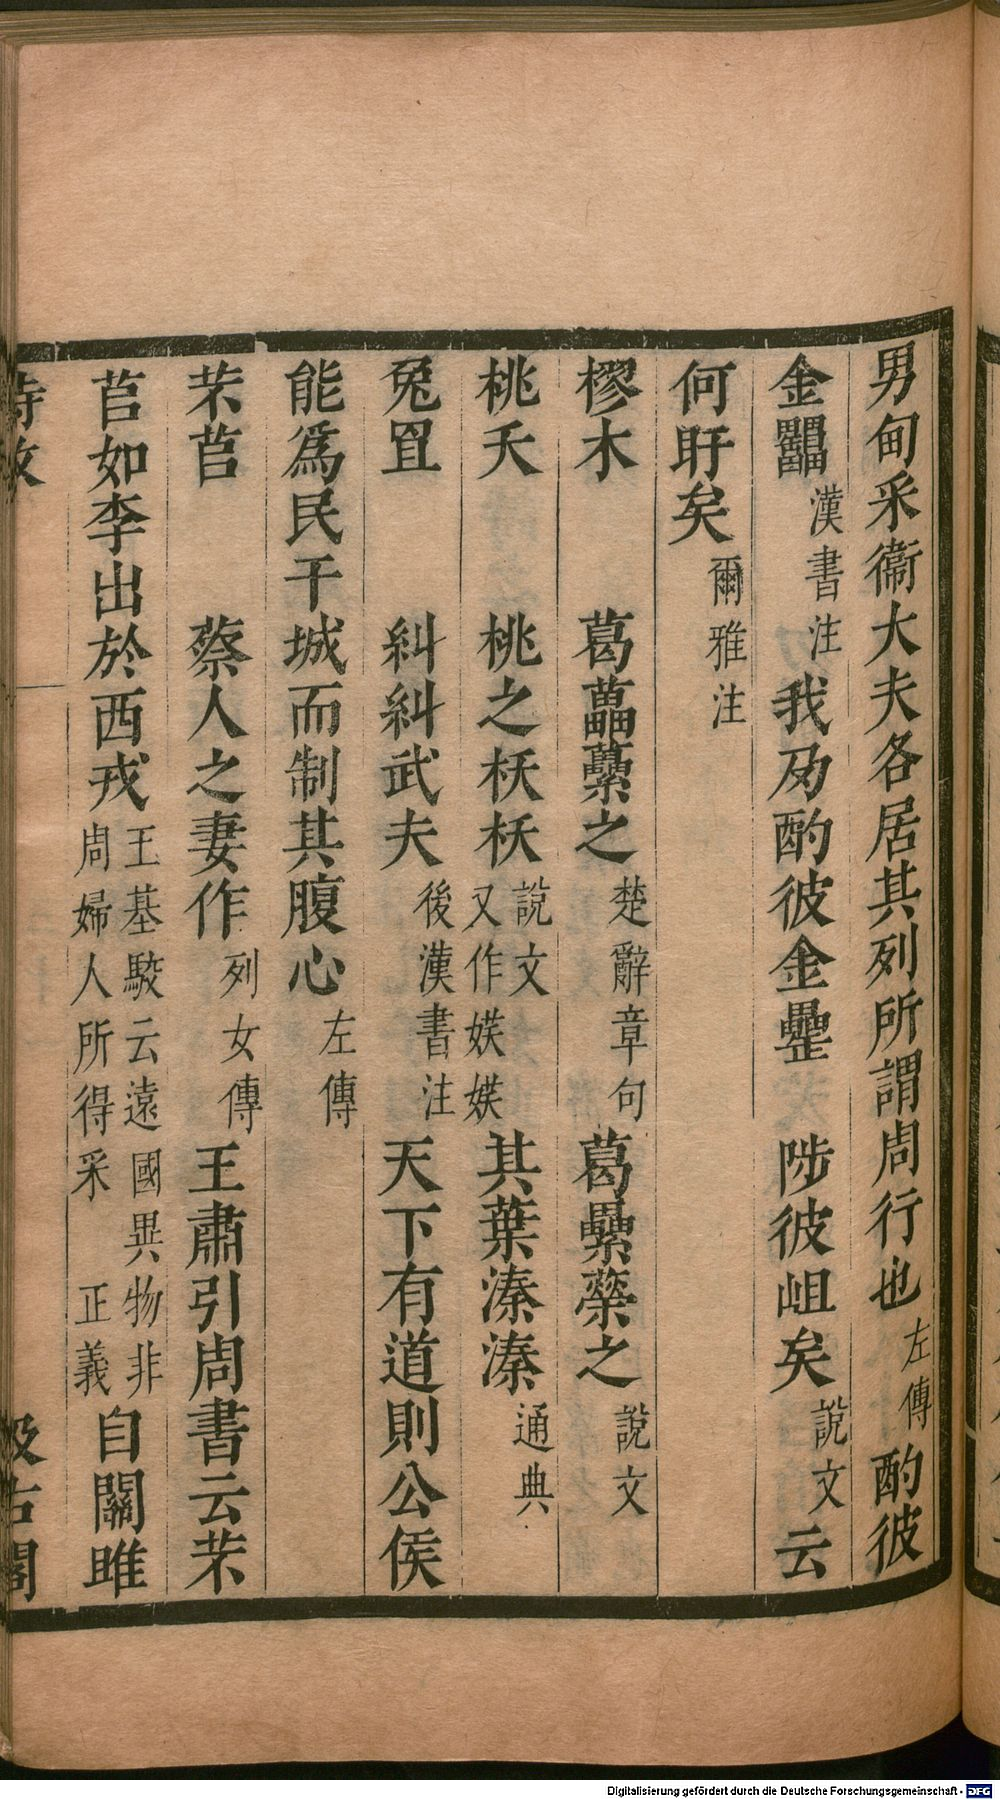 男甸采衞大夫各居其列所謂周行也左傳酌彼
金罍漢書注我夃酌彼金罍 陟彼岨矣說文云
何盱矣爾雅注
樛木 葛藟虆之楚辭章句葛纍藥之說文
桃夭 桃之枖枖說文又作媄媄其葉溱溱通典
兔罝 糾糾武夫後漢書注天下有道則公侯
能爲民干城而制其腹心左傳
芣苢 蔡人之妻作列女傳王肅引周書云芣
苢如李出於西戎王基駮云遠國異物非周婦人所得采 正義自關雎
詩攷 汲古閣
Digitalisierung gefördert durch die Deutsche Forschungsgemeinschaft - DFG